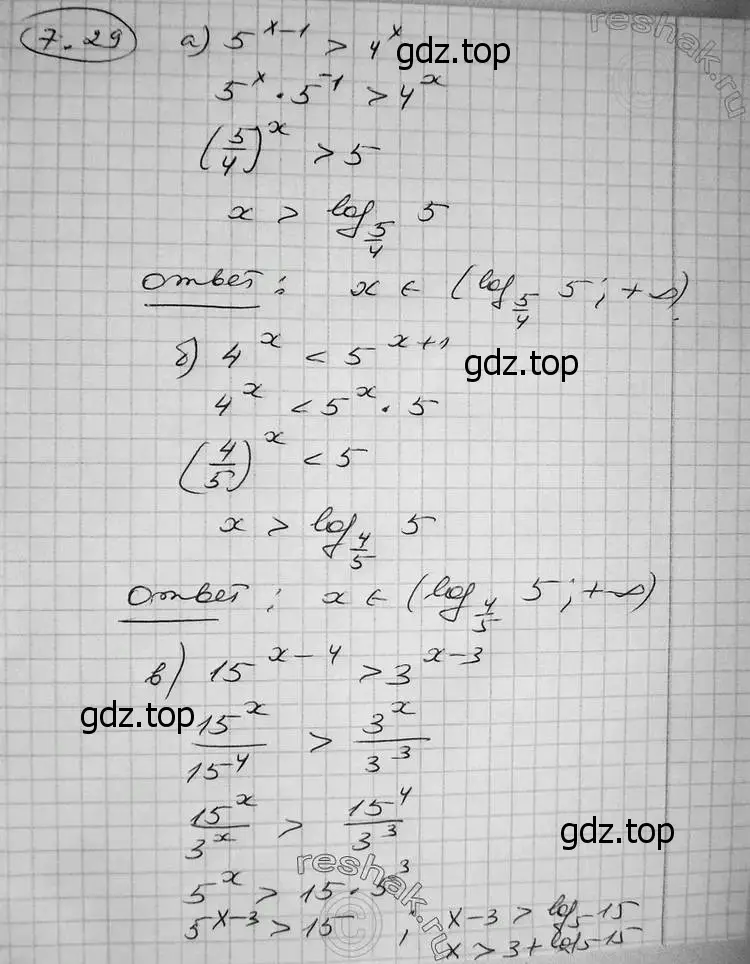 7.29 а) 5^{x-1} > 4^x
gdz.top
5^x · 5^{-1} > 4^x
(5/4)^x > 5
x > log_{5/4} 5
Ответ: x ∈ (log_{5/4} 5; +∞)
б) 4^x < 5^{x+1}
gdz.top
4^x < 5^x · 5
(4/5)^x < 5
x > log_{4/5} 5
Ответ: x ∈ (log_{4/5} 5; +∞)
в) 15^{x-4} > 3^{x-3}
gdz.top
15^x/15^{-4} > 3^x/3^{-3}
15^x/3^x > 15^4/3^3
gdz.top
5^x > 15 · 5^3
5^{x-3} > 15; x-3 > log_5 15
x > 3 + log_5 15
reshak.ru
reshak.ru